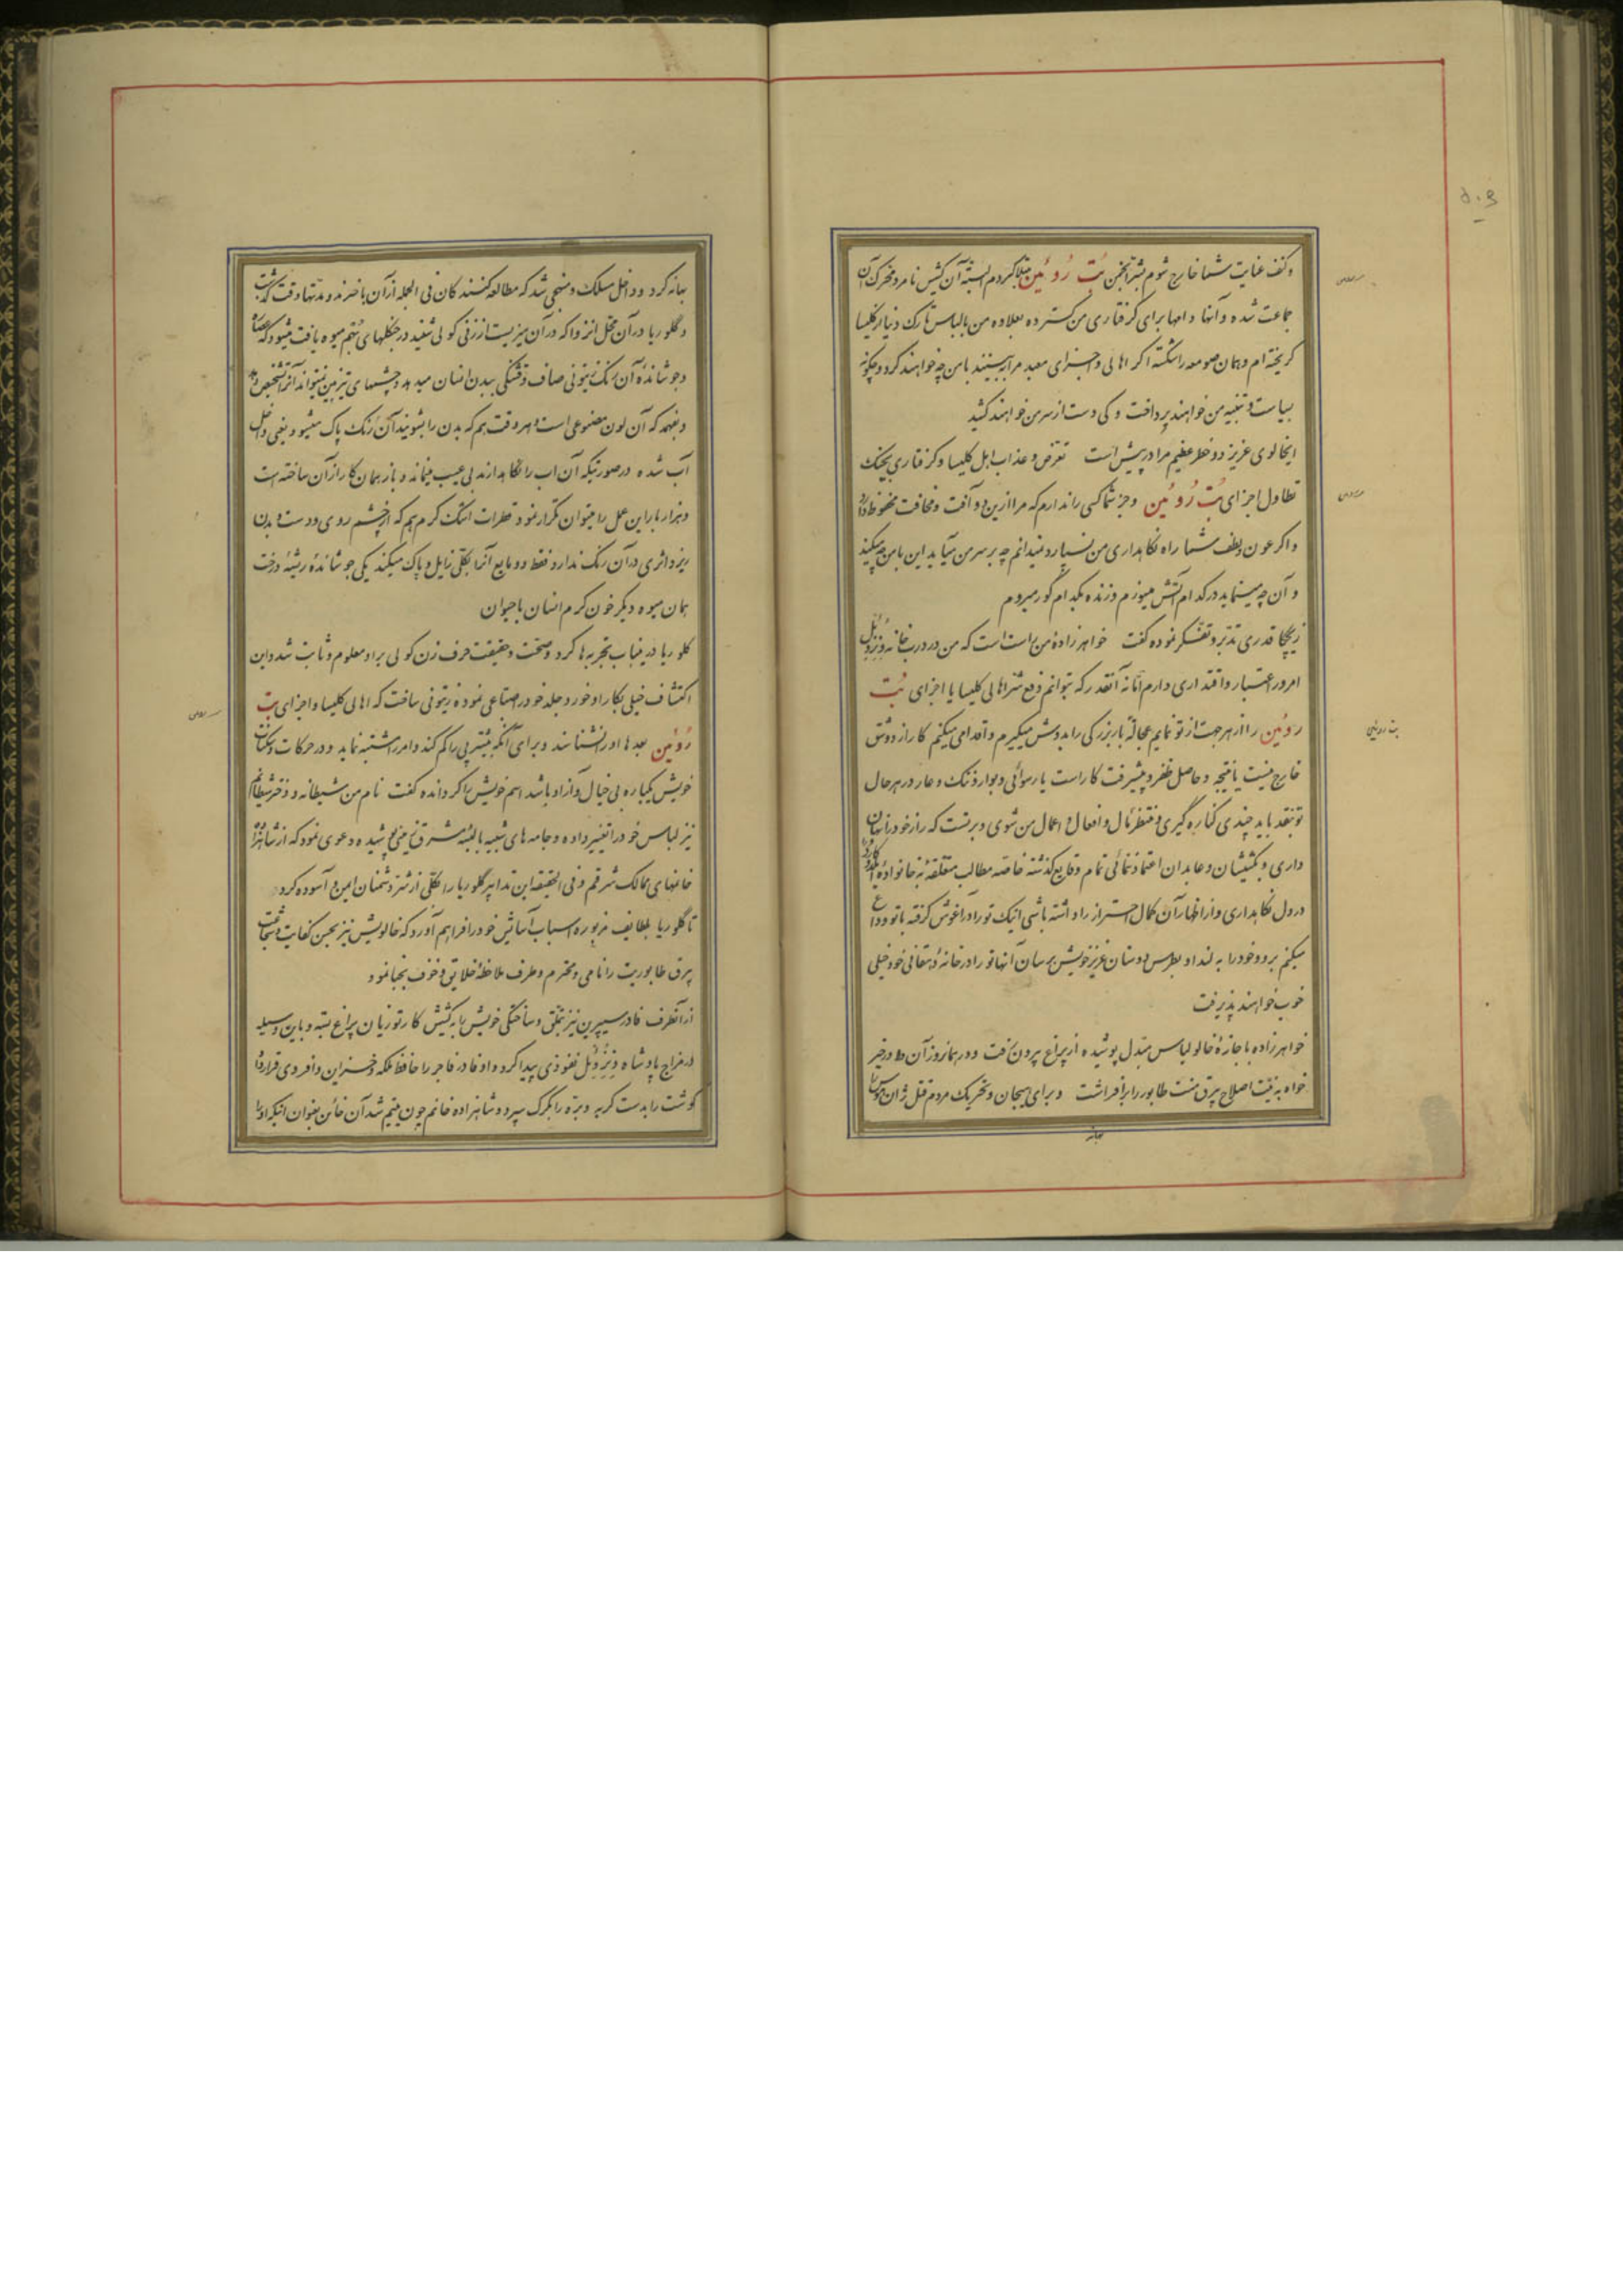 وکنف عنایت شما خارج شوم بشر انجمن بُت رُوئین مبتلا گردم البته آن کشیش نامرد محرک آن
جماعت شده و آنها دامها برای گرفتاری من گسترده بعلاوه من با لباس تارک دنیا از کلیسا
گریخته ام و پیمان صومعه را شکسته اگر اهالی و اجزای معبد مرا ببینند با من چه خواهند کرد و چگونه
بسیاست و تنبیه من خواهند پرداخت و کی دست از سر من خواهند کشید
ایخالوی عزیز دو خطر عظیم مرا در پیش است تعرض و عذاب اهل کلیسا و گرفتاری بچنگ
تطاول اجزای بُت رُوئین و جز شما کسی را ندارم که مرا ازین دو آفت و مخافت محفوظ دارد
و اگر عون و لطف شما راه نگاهداری من نسپارد نمیدانم چه بر سر من میآید این با من چه میکند
و آن چه مینماید در کدام آتش میسوزم و زنده بکدام گور میروم
ریچکا قدری تدبر و تفکر نموده گفت خواهرزادهٔ من راست است که من در درب خانهٔ دِنرُوِیل
امروز اعتبار و اقتداری دارم امّا نه آنقدر که بتوانم دفع شر اهالی کلیسا یا اجزای بُت
روئین را از هر جهت از تو نمایم عجالةً بار بزرگی را بدوش میگیرم و اقدامی میکنم کار از دو شق
خارج نیست یا نتیجه و حاصل ظفر و پیشرفت کار است یا رسوائی و بوار و ننگ و عار در هر حال
تو بنقد باید چندی کناره گیری و منتظر مآل و افعال و اعمال من شوی و بر تست که راز خود را پنهان
داری و بکشیشان و عابدان اعتماد ننمائی تمام وقایع گذشته خاصه مطالب متعلقهٔ بخانوادهٔ
در دل نگاهداری و از اظهار آن کمال احتراز را داشته باشی اینک تو را در آغوش گرفته با تو وداع
میکنم برو و خود را به لنداو بطرس دوستان عزیز خویش برسان آنها تو را در خانهٔ دهقانی خود خیلی
خوب خواهند پذیرفت
خواهرزاده با جازهٔ خالو لباس مبدل پوشیده از پراغ بیرون رفت و در همانروز آن مادر خیر
خواه به نیّت اصلاح بیرق منت طابور را بر افراشت و برای هیجان و تحریک مردم قتل ژان هوس را
بهانه
بهانه کرد و داخل مسلک و منهجی شد که مطالعه کنندگان فی الجمله از آن باخبرند و مدتها وقت گذشت
و گلوریا در آن محل انزوا که در آن میزیست از زنی کولی شنید در جنگلهای بُهِم میوه یافت میشود که عصاره
و جوشاندهٔ آن رنگ زیتونی صاف و قشنگی ببدن انسان میدهد و چشمهای تیزبین نمیتواند آنرا تشخیص دهد
و بفهمد که آن لون مصنوعی است و هر وقت هم که بدن را بشویند آن رنگ پاک میشود یعنی داخل
آب شده در صورتیکه آن اب را نگاهدارند بی عیب میماند و باز همان کار از آن ساخته است
و هزار بار این عمل را میتوان تکرار نمود قطرات اشک گرم هم که از چشم روی و دست و بدن
ریزد اثری در آن رنگ ندارد فقط دو مایع آنرا بکلّی زایل و پاک میکند یکی جوشاندهٔ ریشهٔ درخت
همان میوه دیگر خون گرم انسان یا حیوان
گلوریا در ینباب تجربه ها کرد و صحت و حقیقت حرف زن کولی بر او معلوم و ثابت شد و این
اکتشاف خیلی بکار او خورد و جلد خود را صناعی نموده زیتونی ساخت که اهالی کلیسا و اجزای بت
رُوئین بعدها او را نشناسند و برای آنکه بیشتر پی را گم کند و امر را مشتبه نماید و در حرکات و سکنات
خویش یکباره بی خیال و آزاد باشد اسم خویش را گردانده گفت نام من شیطانه و دختر شیطانم
نیز لباس خود را تغییر داده و جامه های شبیه بالبسهٔ مشرق زمینی پوشیده دعوی نمود که از شاهزاده
خانمهای ممالک شرقم و فی الحقیقه این تدابیر گلوریا را بکلّی از شر دشمنان ایمن و آسوده کرد
تا گلوریا بلطایف مزبوره اسباب آسایش خود را فراهم آورد که خالویش نیز بحسن کفایت و شجاعت
بیرق طابوریت را نامی و محترم و طرف ملاحظهٔ خلایق و خوف نجبا نمود
از آنطرف فادر سیپرین نیز بتملق و ساختگی خویش را به کشیش کارتوزیان پراغ بسته و باین وسیله
در مزاج پادشاه وِنزِوِیل نفوذی پیدا کرد و او فادر فاجر را حافظ ملکه و خسران و افردی قرار داد
گوشت را بدست گربه و بره را بگرگ سپرد و شاهزاده خانم چون یتیم شد آن خائن بعنوان اینکه او را
بت روئین
۵۰۶